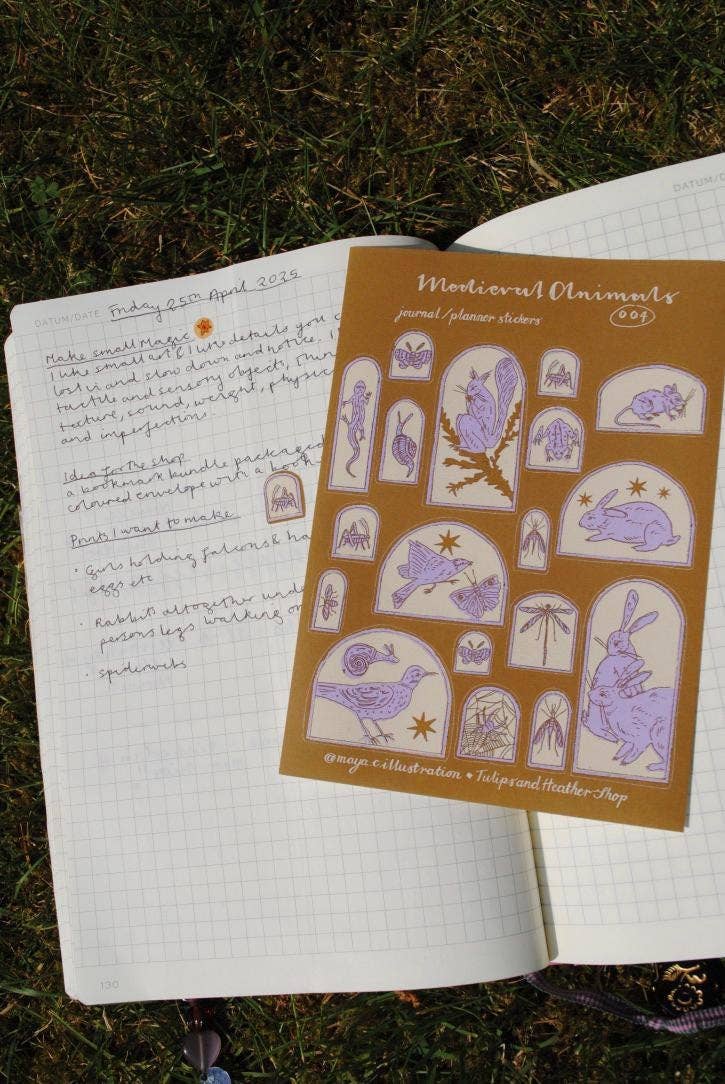 DATUM/DATE Friday 25th April 2025
Make small Magic
I like small art & little details you c
lost in and slow down and notice. I
tactile and sensory objects, thin
texture, sound, weight, physic
and imperfections.
Idea for the shop
a bookmark bundle packaged
coloured envelope with a book
Prints I want to make
• Girls holding falcons & ha
eggs etc
• Rabbits altogether und
persons legs walking on
• spiderwebs
130
DATUM/D
Medieval Animals
journal/planner stickers
004
@maya.c.illustration • TulipsandHeatherShop